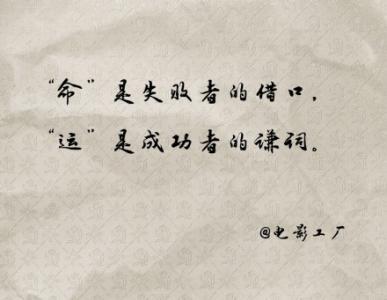 “命”是失败者的借口,
“运”是成功者的谦词。
@电影工厂